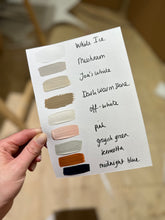 White Ice
Mushroom
Jen's White
Dark Warm Stone
off-white
pink
greyish green
terracotta
midnight blue